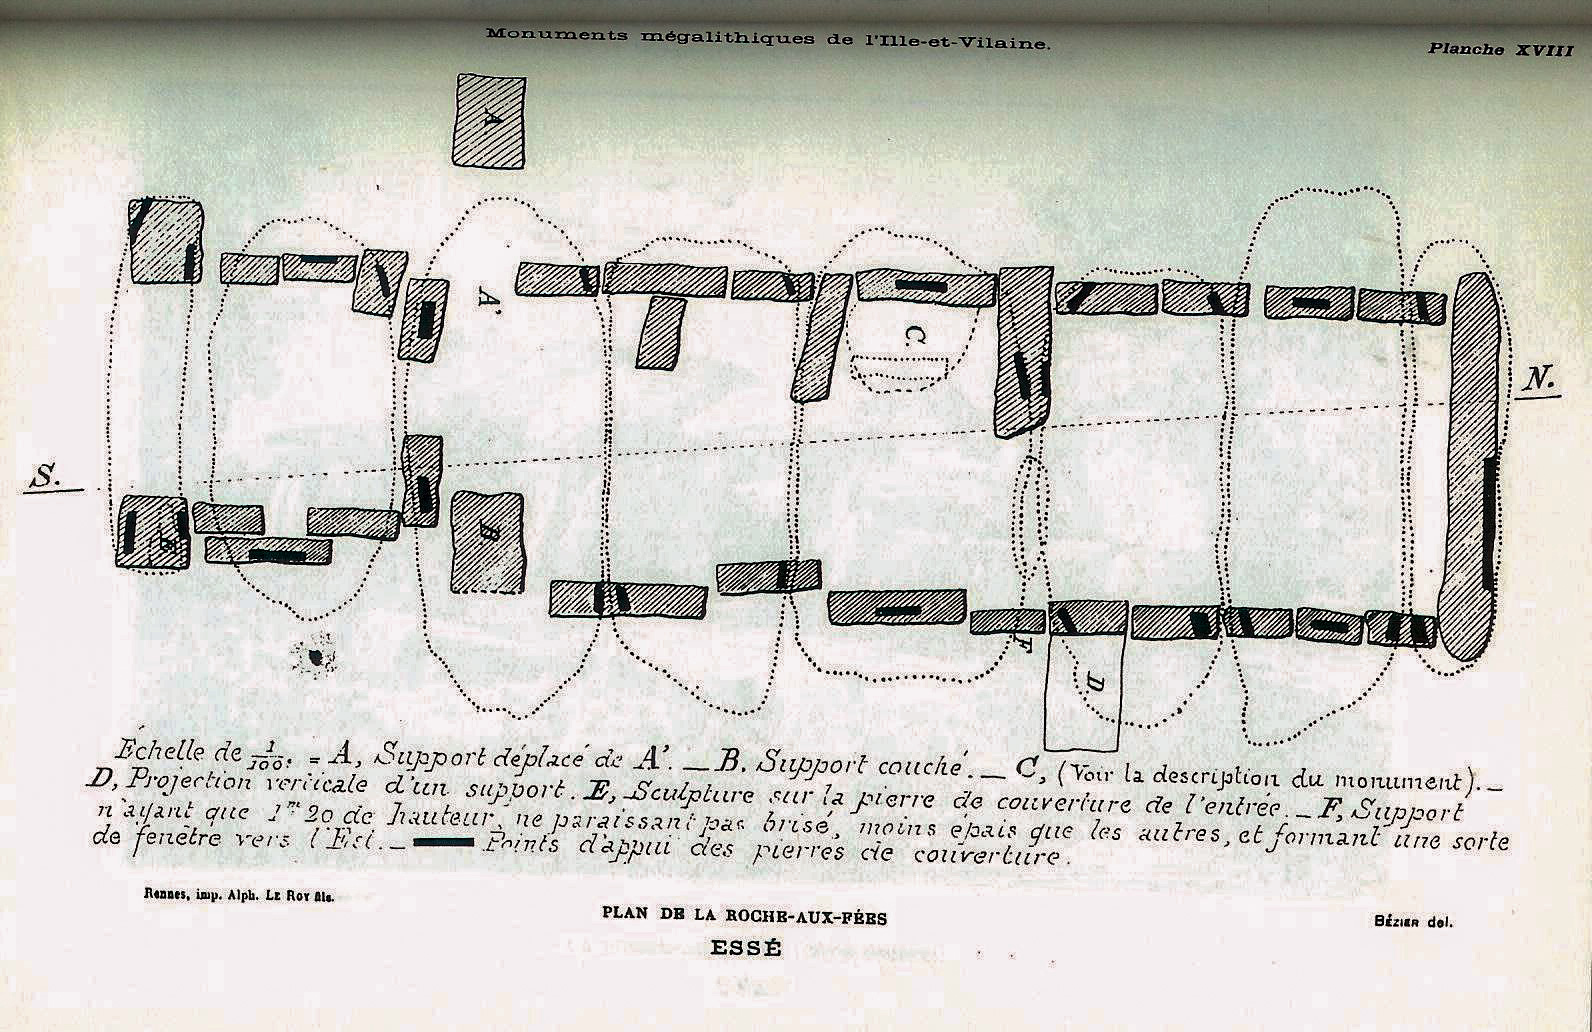 Monuments mégalithiques de l'Ille-et-Vilaine.
Planche XVIII
A
A'
C.
N.
S.
E
B
F
D.
Échelle de 1/100. = A, Support déplacé de A'. — B. Support couché. — C, (Voir la description du monument). —
D, Projection verticale d'un support. E, Sculpture sur la pierre de couverture de l'entrée. — F, Support
n'ayant que 1m 20 de hauteur, ne paraissant pas brisé, moins épais que les autres, et formant une sorte
de fenêtre vers l'Est. — Points d'appui des pierres de couverture.
Rennes, imp. Alph. LE ROY fils.
PLAN DE LA ROCHE-AUX-FÉES
BÉZIER del.
ESSÉ